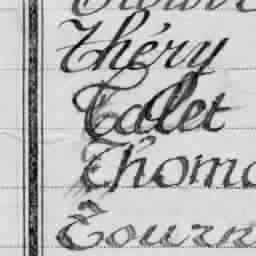 Théry
Talet
Thoma
Tourn